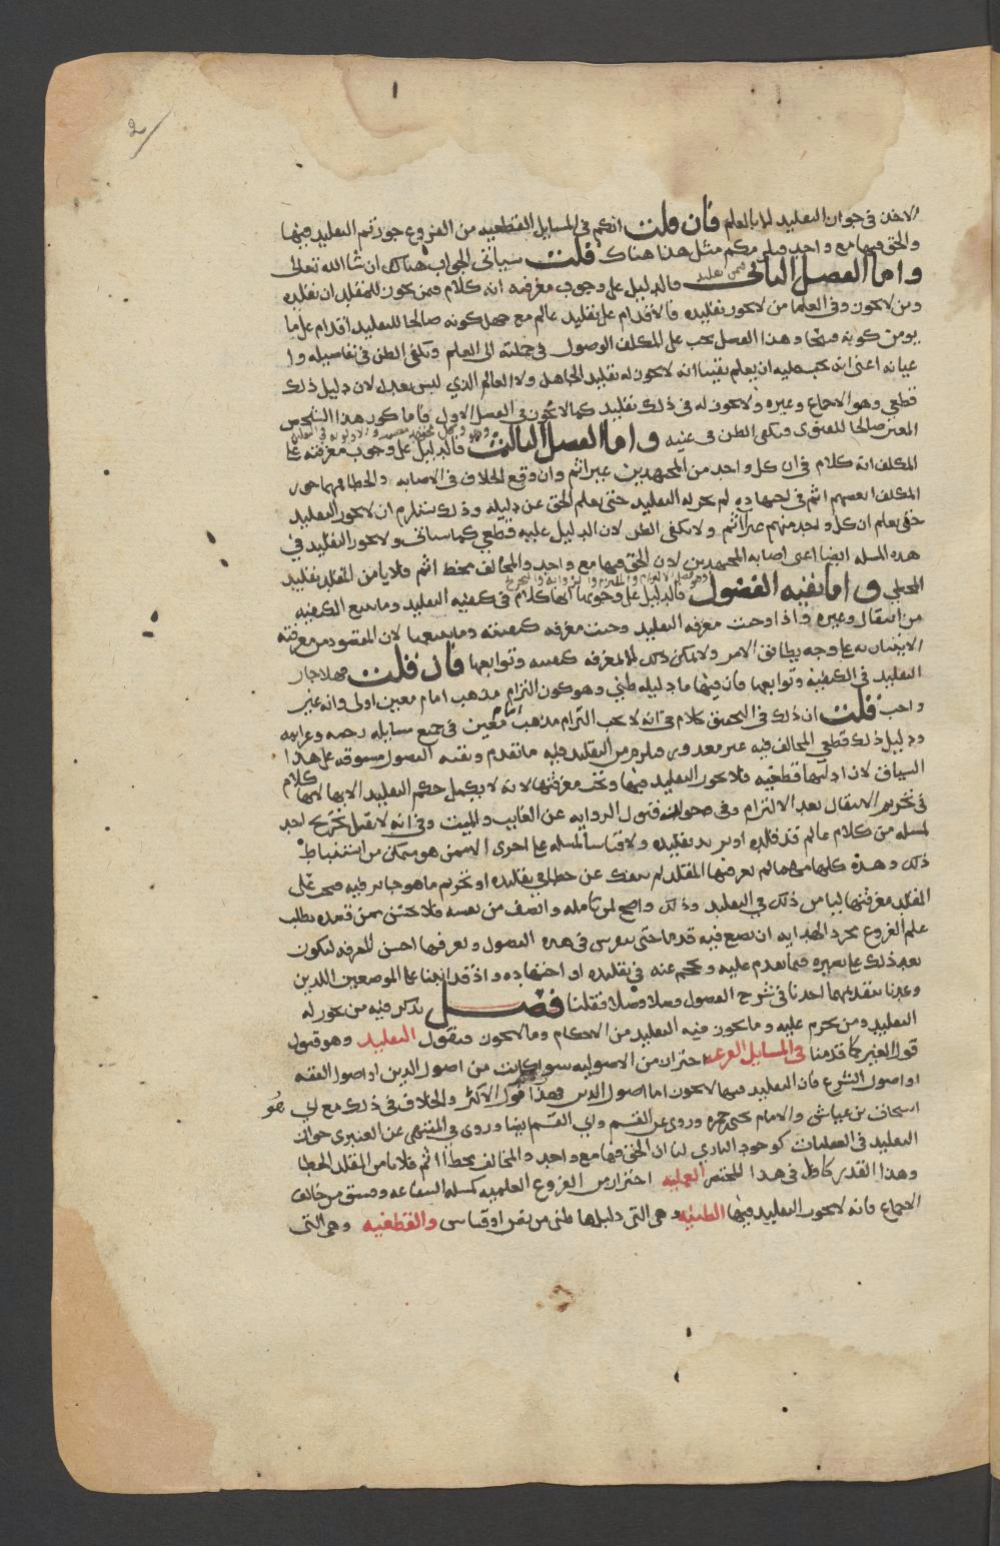 الاخذ في جواز التقليد لها بالعلم فان قلت انكم في المسايل القطعيه من الفروع جوزتم التقليد فيها
والحق فيها مع واحد مثل هذا هناك قلت سياتي الجواب هناك ان شا الله تعالى
واما الفصل الثاني فالدليل على وجوب معرفته انه كلام فمن يجوز للمقلد ان يقلده
ومن لا يجوز وفي العلما من لا يجوز تقليده فالاقدام على تقليد عالم مع جهل كونه صالحا للتقليد اقدام على ما
يومن كونه قبيحا وهذا الفصل يجب على المكلف الوصول في جملته الى العلم ويكفي الظن في تفاصيله وا
عيانه اعني انه يجب عليه ان يعلم يقينا انه لا يجوز له تقليد الجاهل ولا العالم الذي ليس بعدل لان دليل ذلك
قطعي وهو الاجماع وغيره ولا يجوز له في ذلك تقليد كما لا يجوز في الفصل الاول فاما كون هذا الشخص
المعين صالحا للفتوى فيكفي الظن في عينه واما الفصل الثالث فالدليل على وجوب معرفته على
المكلف انه كلام في ان كل واحد من المجتهدين غير اثم وان وقع الخلاف في الاصابه والخطا
المكلف ان بعضهم اثم في اجتهاده لم يجز له التقليد حتى يعلم الحق عن دليله وذلك يستلزم ان لا يجوز التقليد
حتى يعلم ان كل واحد منهم غير اثم ولا يكفي الظن لان الدليل عليه قطعي كما سياتي ولا يجوز التقليد في
هذه المسله ايضا اعني اصابه المجتهدين لان الحق فيها مع واحد والمخالف مخط اثم فلا يامن المقلد تقليد
المخطي واما بقيه الفصول فالدليل على وجوبها انها كلام في كيفيه التقليد وما يتبع الكيفيه
من انتقال وغيره واذا وجبت معرفه التقليد وجبت معرفه كيفيته وما يتبعها لان المقصود من معرفته
الاتيان به على وجه يطابق الامر ولا يمكن ذلك الا بمعرفه كيفيته وتوابعها فان قلت فهلا جاز
التقليد في الكيفيه وتوابعها فان فيها ما دليله ظني وهو كون التزام مذهب امام معين اولى وانه غير
واجب قلت ان ذلك في التحقيق كلام في انه لا يجب التزام مذهب امام معين في جميع مسايله رخصه وعزايمه
ودليل ذلك قطعي المخالف فيه غير معذور من التقليد فيه ما تقدم وبقيه الفصول مسوقه على هذا
السياق لان ادلتها قطعيه فلا يجوز التقليد فيها ويجب معرفتها لانه لا يكمل حكم التقليد الا بها لانها كلام
في تحريم الانتقال بعد الالتزام وفي جواز قبول الروايه عن الغايب والميت وفي انه لا يقبل تخريج احد
لمسله من كلام عالم قد قلده او يريد تقليده ولا قياسا لمسله على اخرى الا ممن هو متمكن من استنباط
ذلك وهذه كلها مهما لم يعرفها المقلد لم ينفك عن خطا في تقليده او تحريم ما هو جايز فيه على
المقلد معرفتها ليامن ذلك في التقليد وذلك واضح لمن تامله وانصف من نفسه فلا يحسن ممن قصده بطلب
علم الفروع مجرد الهدايه ان يضع فيه قدما حتى يتمرس في هذه الفصول ويعرفها احسن المعرفه ليكون
بعد ذلك على بصيره فيما يقدم عليه ويحجم عنه في تقليده او اجتهاده واذ قد اتينا على الموضعين اللذين
وعدنا بتقديمهما اخذنا في شرح الفصول فصلا فصلا فقلنا فصل يذكر فيه من يجوز له
التقليد ومن يحرم عليه وما يجوز فيه التقليد من الاحكام وما لا يجوز فنقول التقليد وهو قبول
قول الغير كما قدمنا في المسايل الفرعيه احتراز من الاصوليه سوا كانت من اصول الدين او اصول الفقه
او اصول الشرع فان التقليد فيها لا يجوز اما اصول الدين فهذا قول الاكثر والخلاف في ذلك مع ابي
اسحاق بن عياش والامام يحيى بن حمزه وروي عن القسم وابي القسم ايضا وروي في المنتهى عن العنبري جواز
التقليد في العقليات كوجود الباري لنا ان الحق فيها مع واحد والمخالف مخط اثم فلا يامن المقلد الخطا
وهذا القدر كاف في هذا المختصر العمليه احتراز من الفروع العلميه كمسله الشفاعه وفسق من خالف
الاجماع فانه لا يجوز التقليد فيها الظنيه وهي التي دليلها ظني من نص او قياس والقطعيه وهي التي
هو